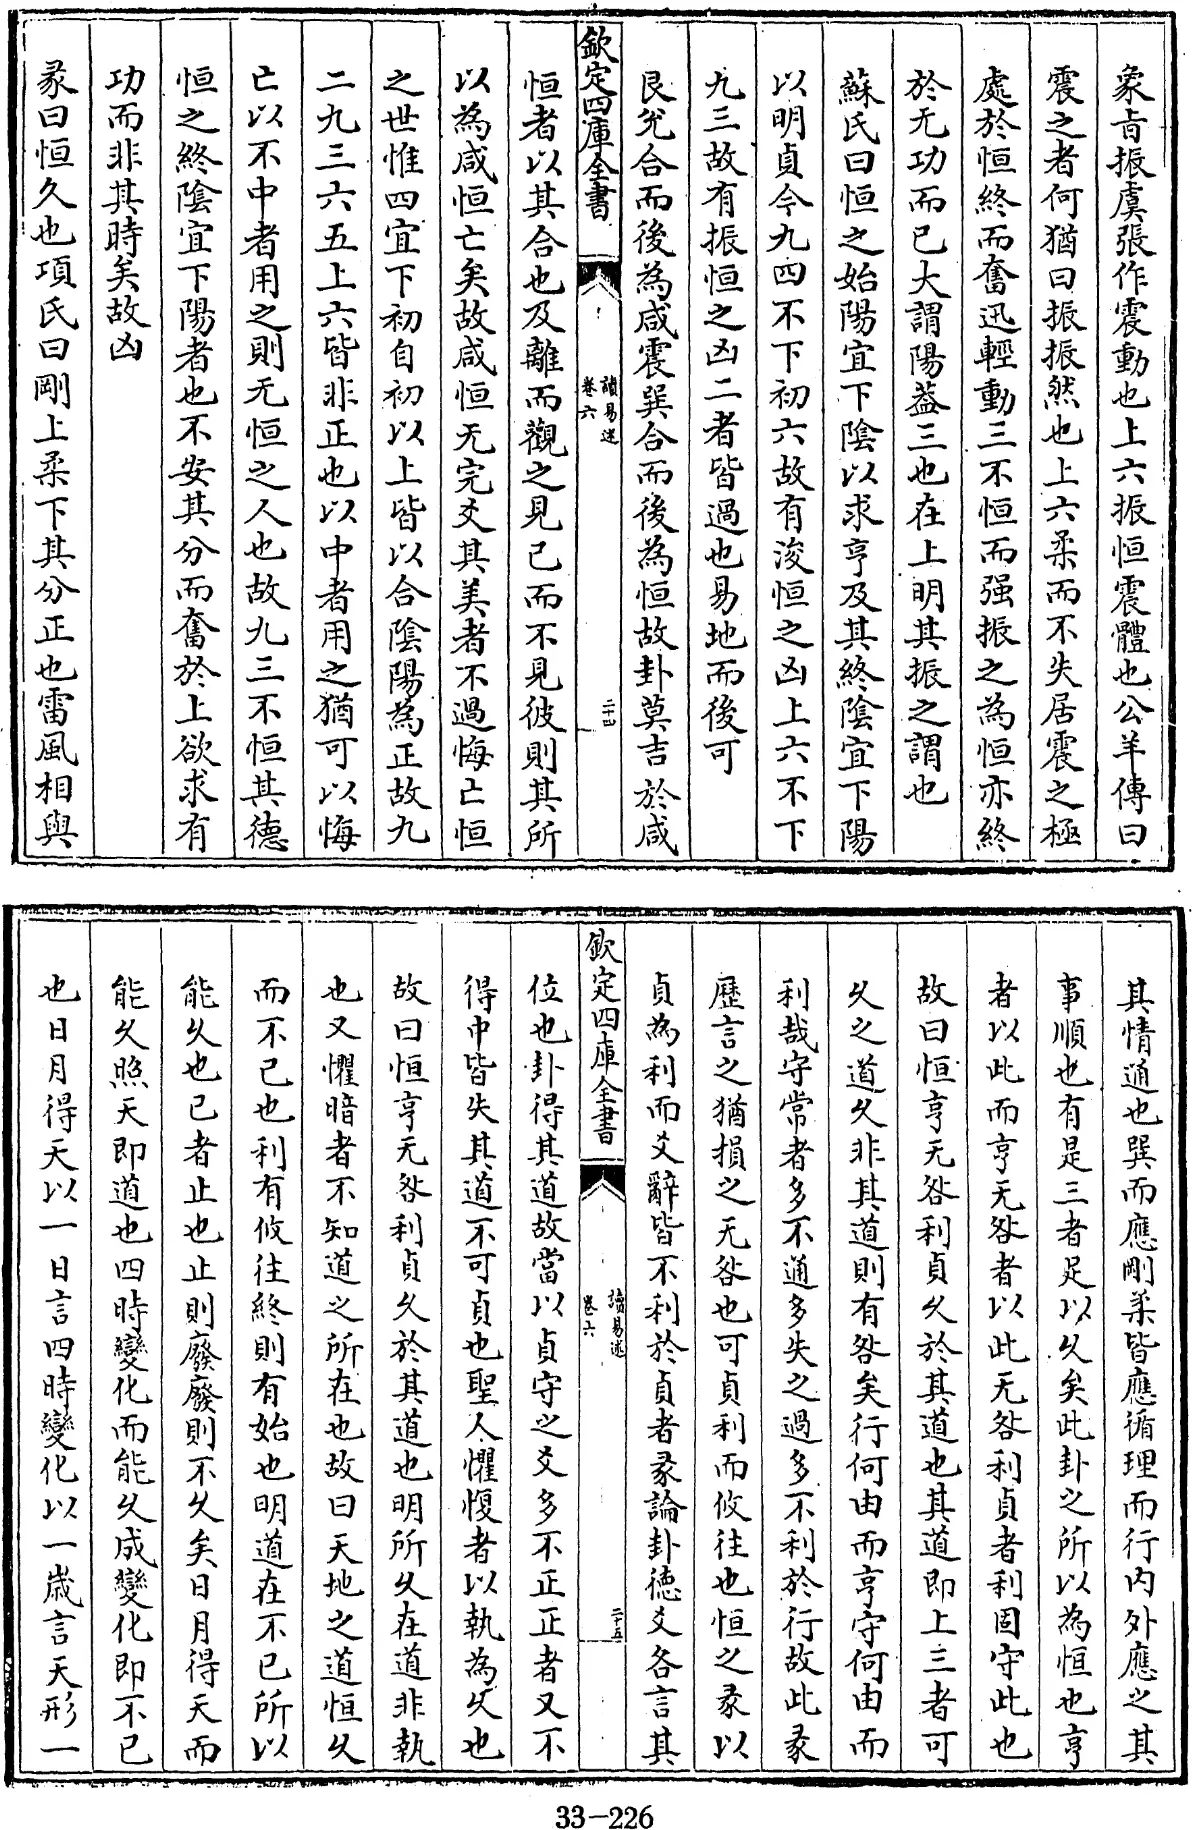 象旨振虞張作震動也上六振恒震體也公羊傳曰
震之者何猶曰振振然也上六柔而不失居震之極
處於恒終而奮迅輕動三不恒而强振之為恒亦終
於无功而已大謂陽葢三也在上明其振之謂也
蘇氏曰恒之始陽宜下陰以求亨及其終陰宜下陽
以明貞今九四不下初六故有浚恒之凶上六不下
九三故有振恒之凶二者皆過也易地而後可
艮兊合而後為咸震巽合而後為恒故卦莫吉於咸
恒者以其合也及離而觀之見己而不見彼則其所
以為咸恒亡矣故咸恒无完爻其美者不過悔亡恒
之世惟四宜下初自初以上皆以合陰陽為正故九
二九三六五上六皆非正也以中者用之猶可以悔
亡以不中者用之則无恒之人也故九三不恒其德
恒之終陰宜下陽者也不安其分而奮於上欲求有
功而非其時矣故凶
彖曰恒久也項氏曰剛上柔下其分正也雷風相與
欽定四庫全書
讀易述
卷六
二十四
其情通也巽而應剛柔皆應循理而行内外應之其
事順也有是三者足以久矣此卦之所以為恒也亨
者以此而亨无咎者以此无咎利貞者利固守此也
故曰恒亨无咎利貞久於其道也其道即上三者可
久之道久非其道則有咎矣行何由而亨守何由而
利哉守常者多不通多失之過多不利於行故此彖
歷言之猶損之无咎也可貞利而攸往也恒之彖以
貞為利而爻辭皆不利於貞者彖論卦德爻各言其
位也卦得其道故當以貞守之爻多不正正者又不
得中皆失其道不可貞也聖人懼愎者以執為久也
故曰恒亨无咎利貞久於其道也明所久在道非執
也又懼暗者不知道之所在也故曰天地之道恒久
而不已也利有攸往終則有始也明道在不已所以
能久也已者止也止則廢廢則不久矣日月得天而
能久照天即道也四時變化而能久成變化即不已
也日月得天以一日言四時變化以一歳言天形一
欽定四庫全書
讀易述
卷六
二十五
33-226